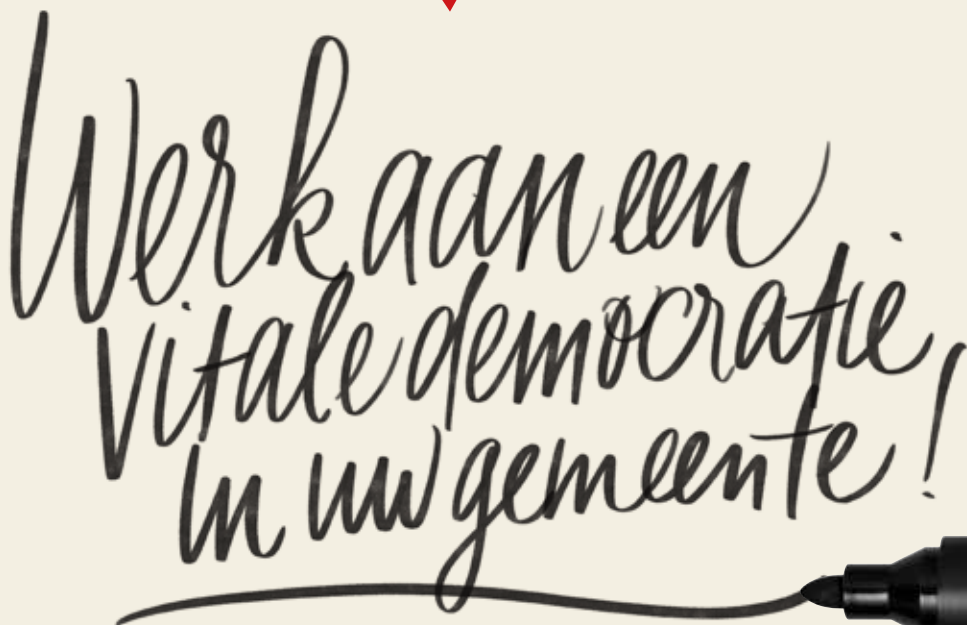 Werk aan een
vitale democratie
in uw gemeente!